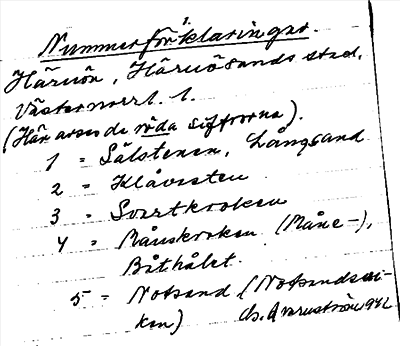 1.
Nummerförklaringar.
Härnön, Härnösands stad,
Västernorrl. l.
(Här avses de röda siffrorna).
1 = Sälstenen, Långsand
2 = Klåvesten
3 = Svartkroken
4 = Månskroken (Måne-),
Båthålet.
5 = Notsand (Notsandsvi-
ken)